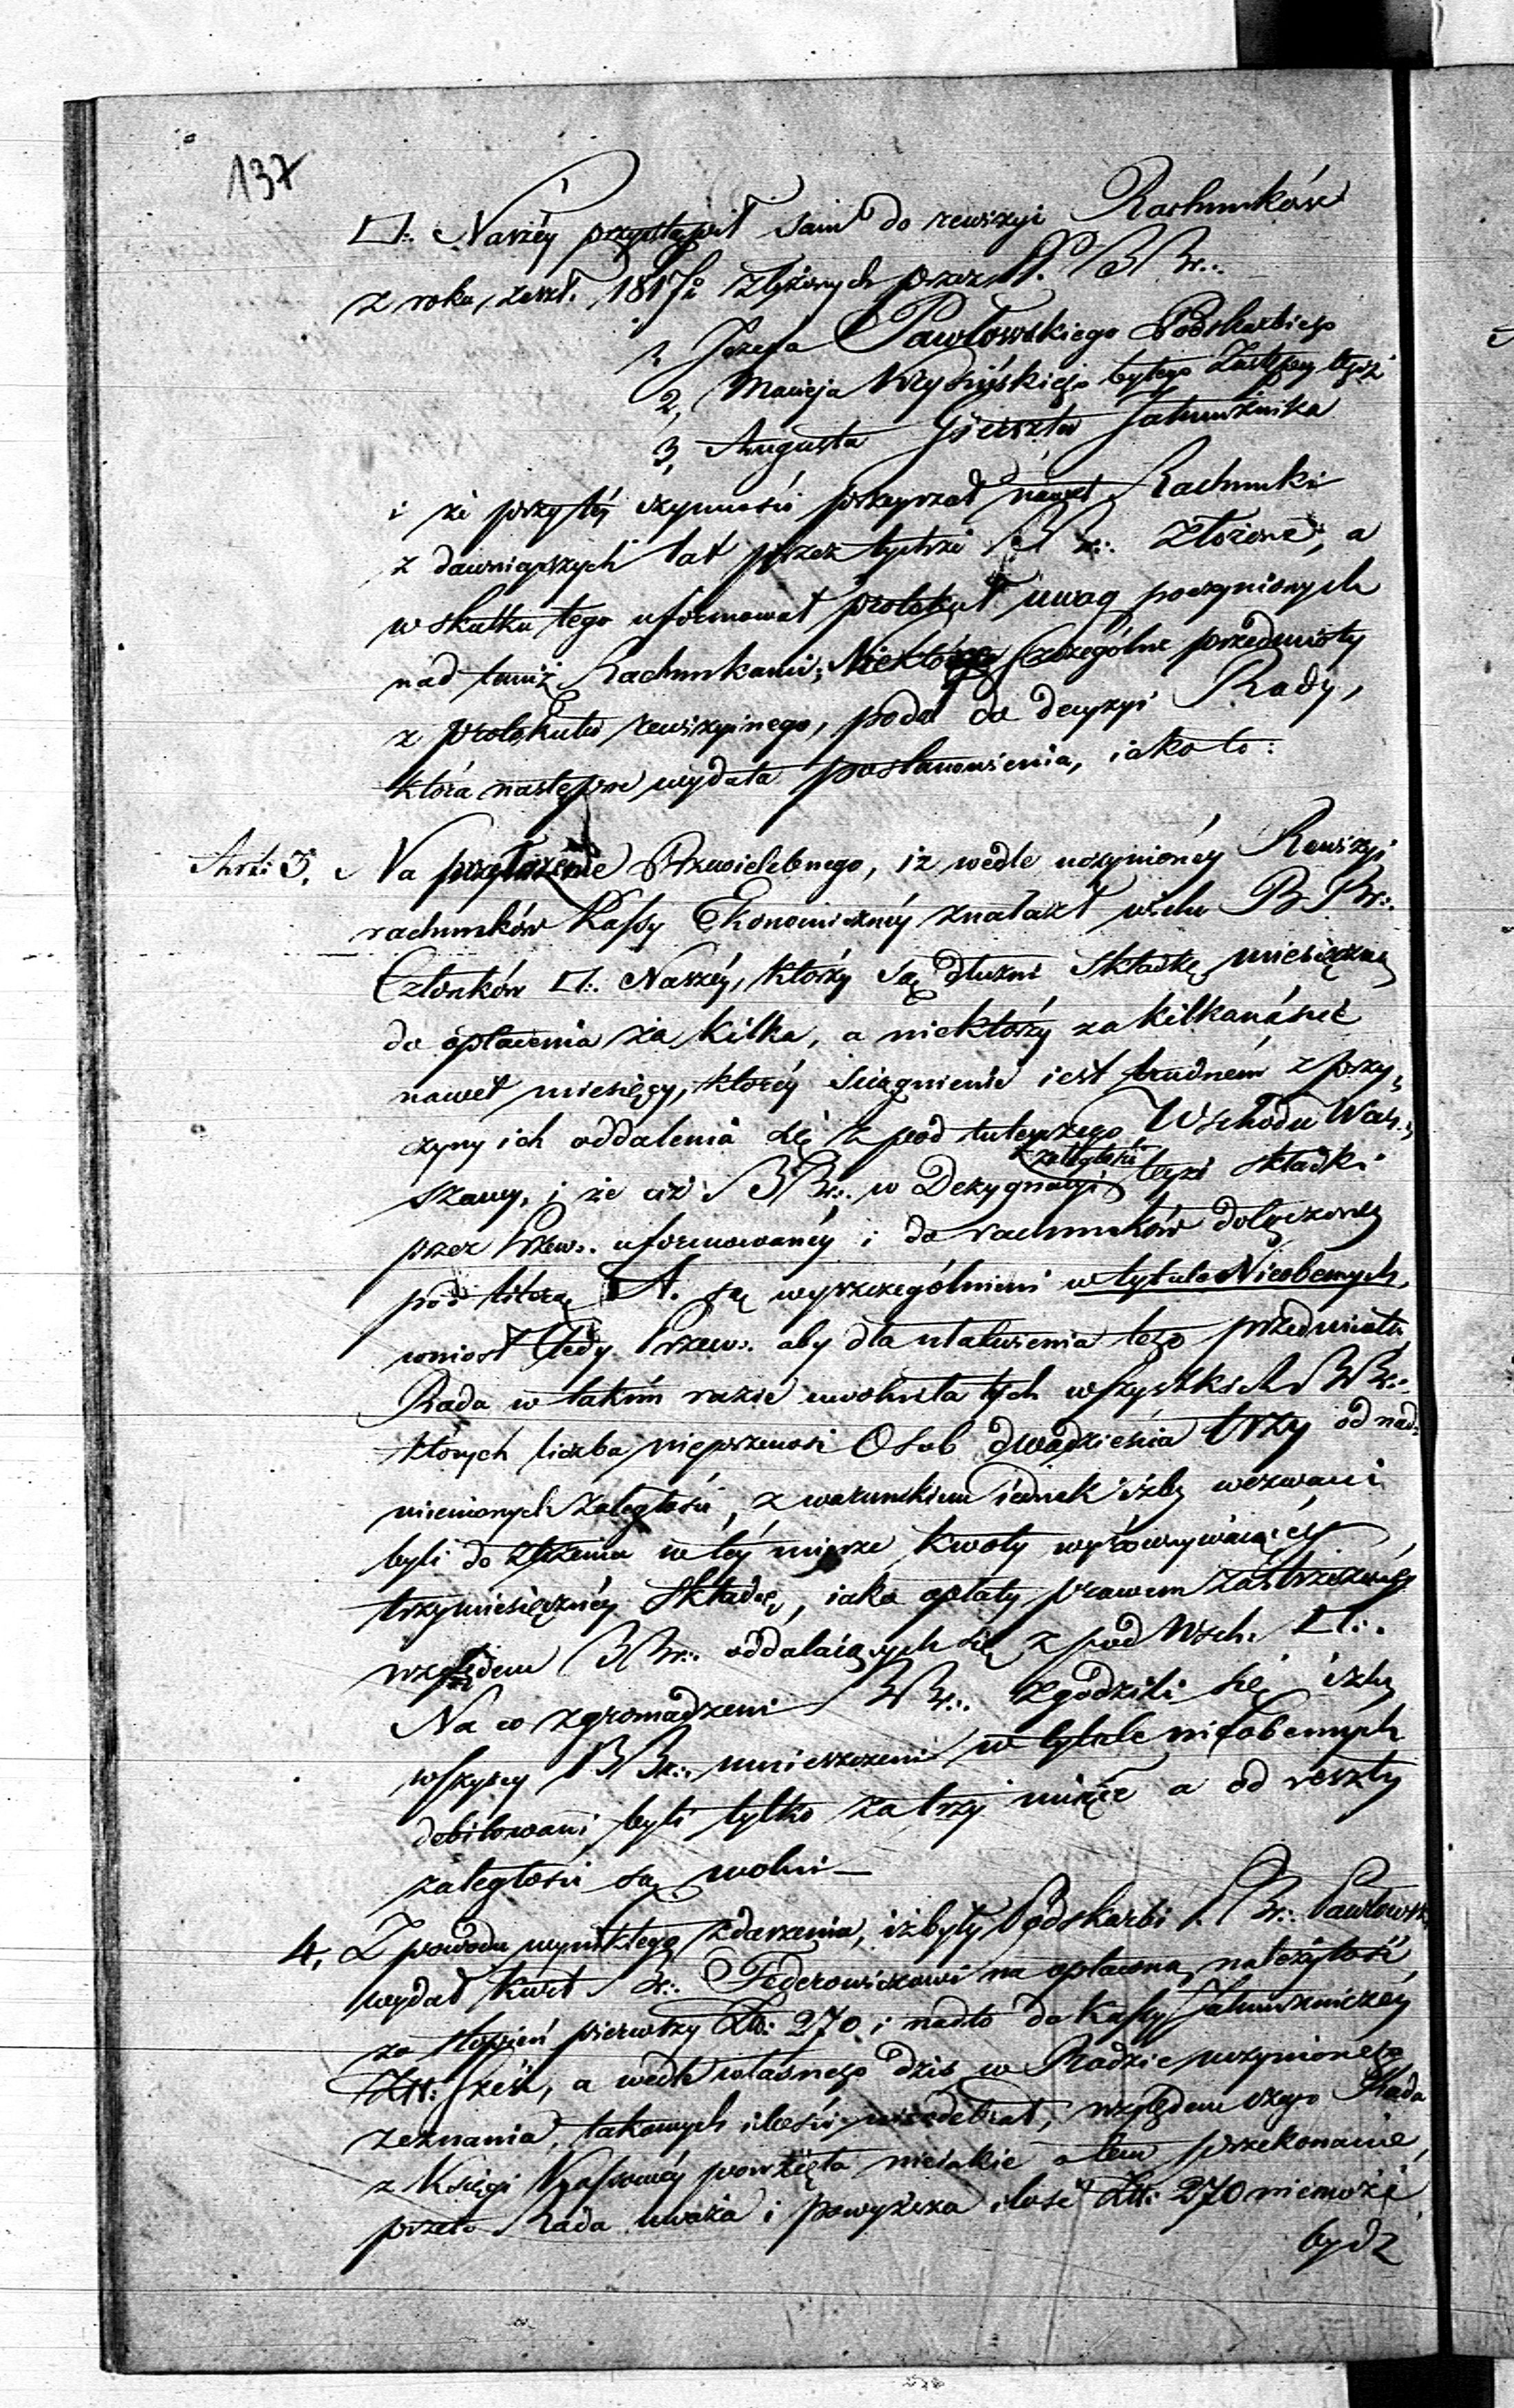 137
▭. Naszéy przystąpił sam do rewizyi Rachunków
z roku zeszł. 1817º złożonych przez P. BBr∴
1, Jozefa Pawłowskiego Podskarbiego
2, Macieja byłego Zastępcy tegoż
3, Augusta Gierszta Jałmużnika
i że przy téj czynności przeyrzał nawet Rachunki
z dawniejszych lat przez tychże BBr∴ złożone, a
w skutku tego uformował protokuł uwag poczynionych
nad temiż Rachunkami; Niektóre szczególne przedmioty
z protokułu rewizyinego, podał do decyzyi Rady,
która następne wydała postanowienia, iako to:
Art: 3, Na przełożenie Przewielebnego, iż wedle uczynionéy Rewizyi
rachunków Kassy Ekonomicznéy znalazł wielu BBr∴
Członków ▭. Naszéy, którzy są dłużni składkę miesięczną
do opłacenia za kilka, a niektórzy za kilkanaście
nawet miesięcy, któréy ściągnienie iest trudném z przy„
czyny ich oddalenia się z pod tuteyszego Wschodu War„
szawy, i że ciż BBr∴ w Dezygnacyi zaległości teyże składki
przez Przew∴ uformowanéy i do rachunków dołączoney
pod literą A. są wyszczególnieni w tytule Nieobecnych,
wniosł tedy Przew∴ aby dla ułatwienia tego przedmiotu
Rada w takim razie uwolniła tych wszystkich BBr∴
których liczba nieprzenosi Osob dwadzieścia trzy od nad„
mienionych zaległości, z warunkiem iednak iżby wezwani
byli do złożenia w téy mierze kwoty wyrównywaiącéy
trzymiesięcznéy składce, iako opłaty prawem zastrzeżonéy
względem BBr∴ oddalaiących się z pod Wsch. ▭∴
Na co zgromadzeni BBr∴ zgodzili się iżby
wszyscy BBr∴ umieszczeni w tytule nieobecnych
debitowani byli tylko za trzy miesiące a od reszty
zaległości są wolni —
4, Z powodu wynikłego zdarzenia, iż były Podskarbi P. Br∴ Pawłowski
wydał kwit Br∴ Federowiczowi na opłaconą należytość
za stopień pierwszy Złt: 270 i nadto do Kassy Jałmużniczey
Złt: sześć, a wedle własnego dziś w Radzie uczynionego
zeznania, takowych ilości nieodebrał, względem czego Rada
z Księgi Kassowéy powzięła nieiakie o tem przekonanie,
przeto Rada uważa i powyższa ilość Złt: 270 niemoże
bydź